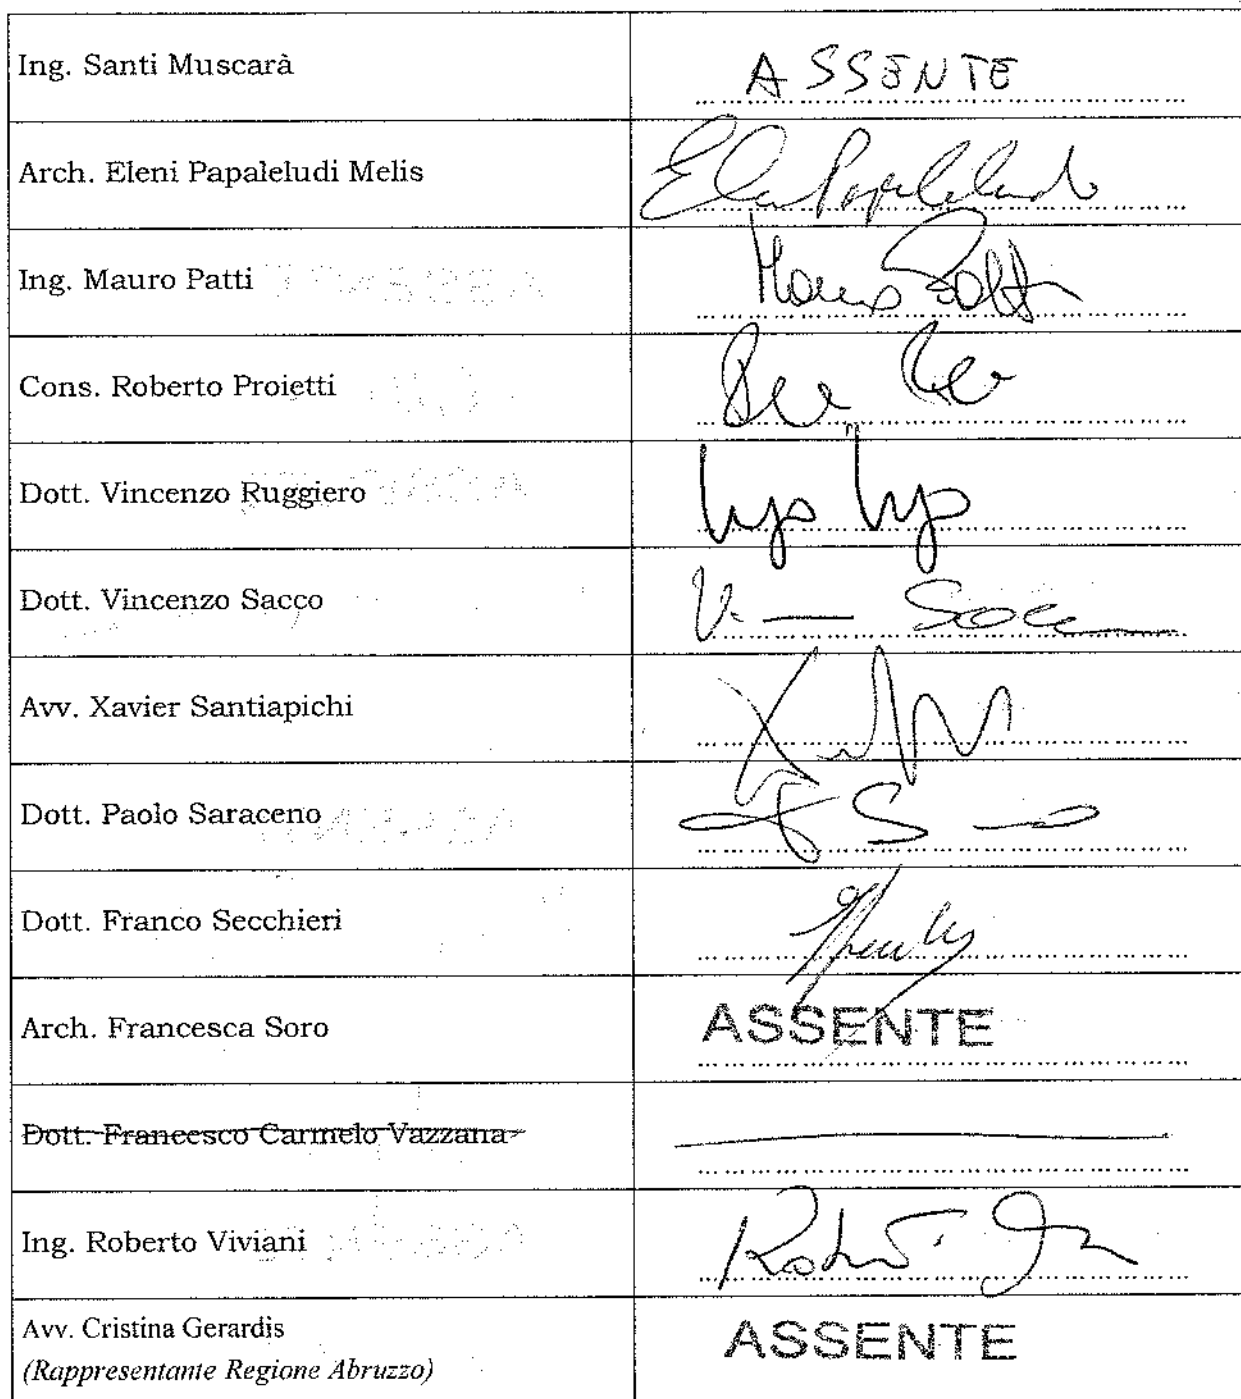 Ing. Santi Muscarà
ASSENTE
Arch. Eleni Papaleludi Melis
Ing. Mauro Patti
Cons. Roberto Proietti
Dott. Vincenzo Ruggiero
Dott. Vincenzo Sacco
Avv. Xavier Santiapichi
Dott. Paolo Saraceno
Dott. Franco Secchieri
Arch. Francesca Soro
ASSENTE
Dott. Francesco Carmelo Vazzana
Ing. Roberto Viviani
Avv. Cristina Gerardis
ASSENTE
(Rappresentante Regione Abruzzo)